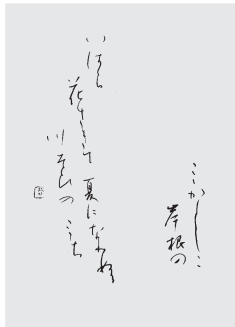 ここかしこ
岸根の
いはら
花さきて夏になりぬる
川そひのみち